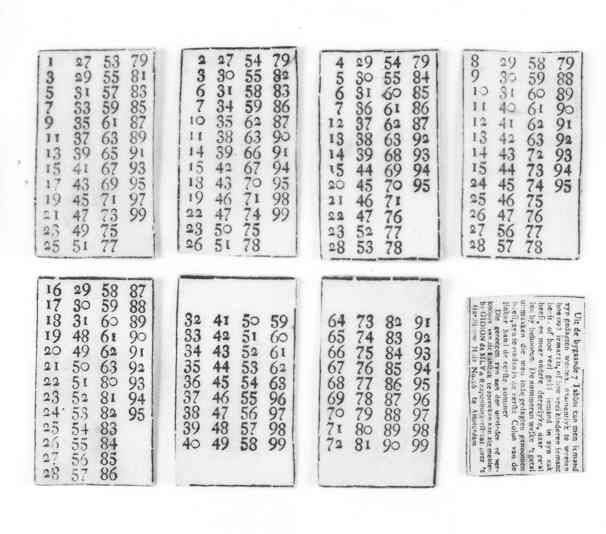 1 27 53 79
3 29 55 81
5 31 57 83
7 33 59 85
9 35 61 87
11 37 63 89
13 39 65 91
15 41 67 93
17 43 69 95
19 45 71 97
21 47 73 99
23 49 75
25 51 77
2 27 54 79
3 30 55 82
6 31 58 83
7 34 59 86
10 35 62 87
11 38 63 90
14 39 66 91
15 42 67 94
18 43 70 95
19 46 71 98
22 47 74 99
23 50 75
26 51 78
4 29 54 79
5 30 55 84
6 31 60 85
7 36 61 86
12 37 62 87
13 38 63 92
14 39 68 93
15 44 69 94
20 45 70 95
21 46 71
22 47 76
23 52 77
28 53 78
8 29 58 79
9 30 59 88
10 31 60 89
11 40 61 90
12 41 62 91
13 42 63 92
14 43 72 93
15 44 73 94
24 45 74 95
25 46 75
26 47 76
27 56 77
28 57 78
16 29 58 87
17 30 59 88
18 31 60 89
19 48 61 90
20 49 62 91
21 50 63 92
22 51 80 93
23 52 81 94
24 53 82 95
25 54 83
26 55 84
27 56 85
28 57 86
32 41 50 59
33 42 51 60
34 43 52 61
35 44 53 62
36 45 54 63
37 46 55 96
38 47 56 97
39 48 57 98
40 49 58 99
64 73 82 91
65 74 83 92
66 75 84 93
67 76 85 94
68 77 86 95
69 78 87 96
70 79 88 97
71 80 89 98
72 81 90 99
Uit de bygaande 7 kan men iemand
zyn gedagten
hoe veel geld iemand in zyn zak
heeft, en meer andere